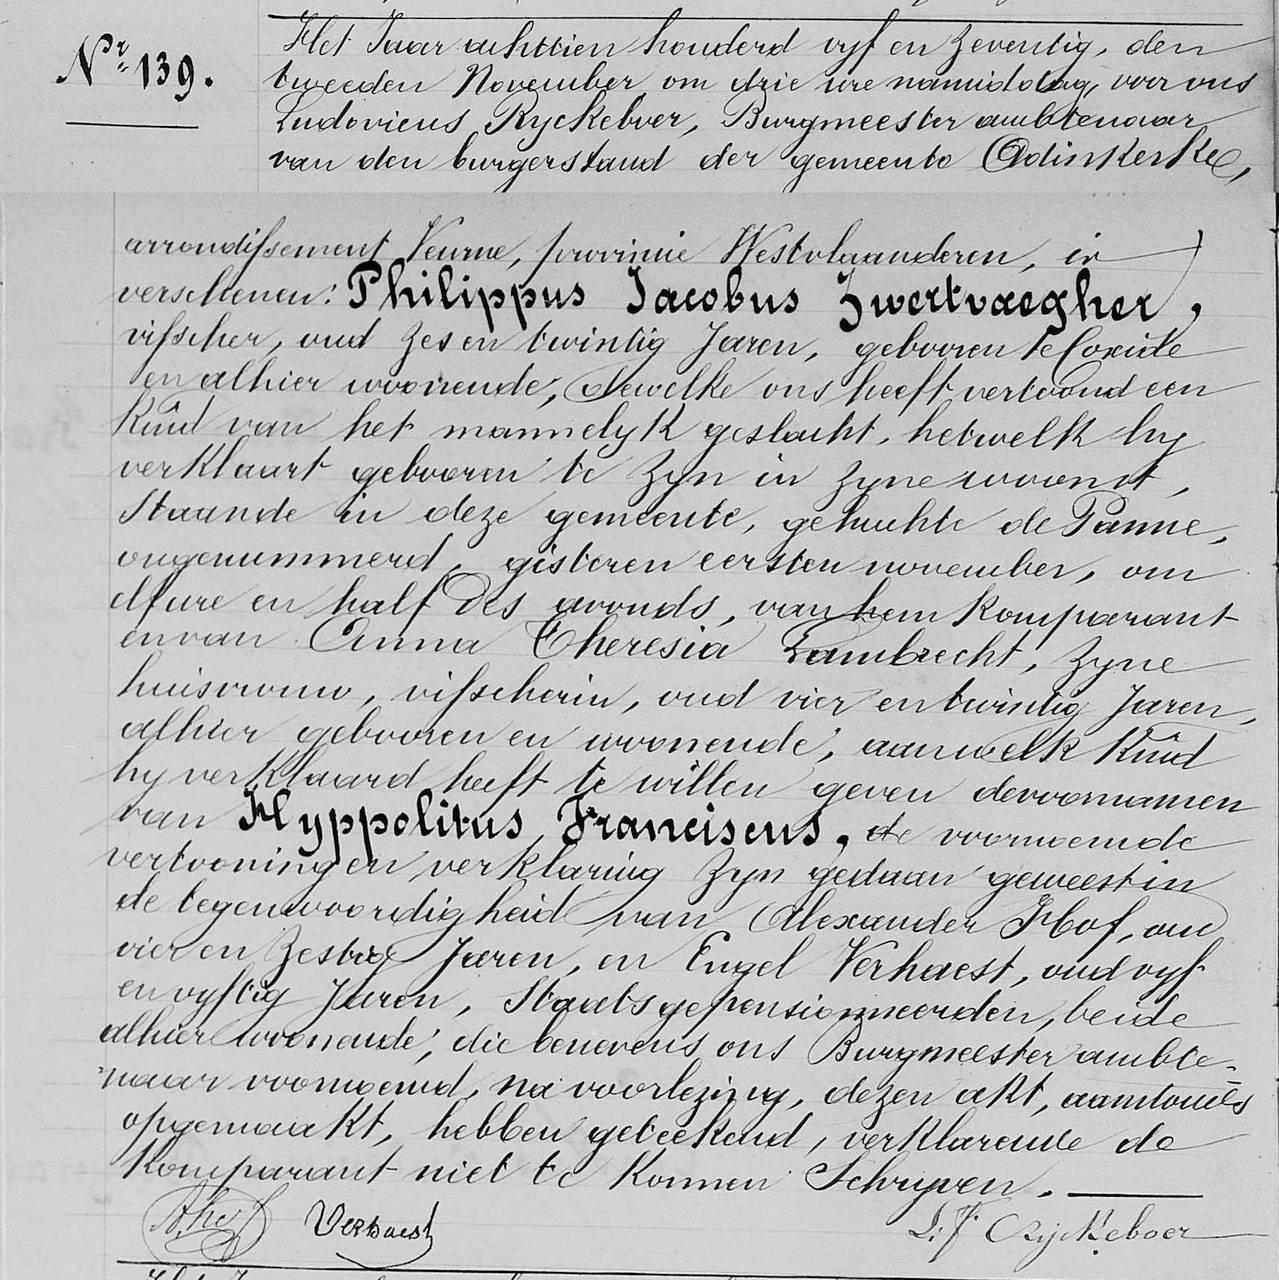 Nr. 139.
Het Jaar achttien honderd vyf en zeventig, den
tweeden November om drie ure namiddag, voor ons
Ludovicus Ryckeboer, Burgmeester ambtenaar
van den burgerstand der gemeente Adinkerke,
arrondissement Veurne, provincie Westvlaanderen, is
verschenen: Philippus Jacobus Zwertvaegher,
visscher, oud zes en twintig Jaren, gebooren te Coxide
en alhier woonende, dewelke ons heeft vertoond een
Kind van het mannelyk geslacht, hetwelk hy
verklaart gebooren te zyn in zyne woonst,
Staande in deze gemeente, gehuchte de Panne,
ongenummerd, gisteren eersten november, om
elf ure en half des avonds, van hem Komparant
en van Anna Theresia Lambrecht, zyne
huisvrouw, visscherin, oud vier en twintig Jaren,
alhier gebooren en woonende, aan welk Kind
hy verklaard heeft te willen geven de voornamen
van Hyppolitus Franciscus, de voornoemde
vertooning en verklaring zyn gedaan geweest in
de tegenwoordigheid van Alexander Hof, oud
vier en zestig Jaren, en Engel Verhaest, oud vyf
en vyftig Jaren, Staatsgepensionneerden, beide
alhier woonende, die benevens ons Burgmeester ambte-
naar voornoemd, na voorlezing, dezen akt, aan tweeës
opgemaakt, hebben geteekend, verklarende de
Komparant niet te Konnen Schryven.
A. Hof Verhaest L. F. Ryckeboer